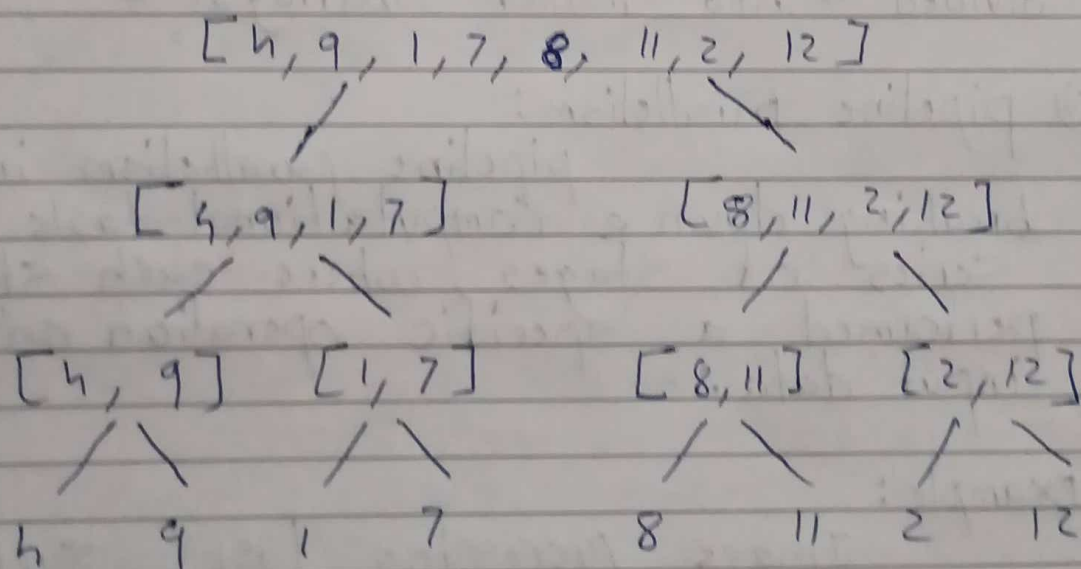 [4, 9, 1, 7, 8, 11, 2, 12]
[4, 9, 1, 7] [8, 11, 2, 12]
[4, 9] [1, 7] [8, 11] [2, 12]
4 9 1 7 8 11 2 12